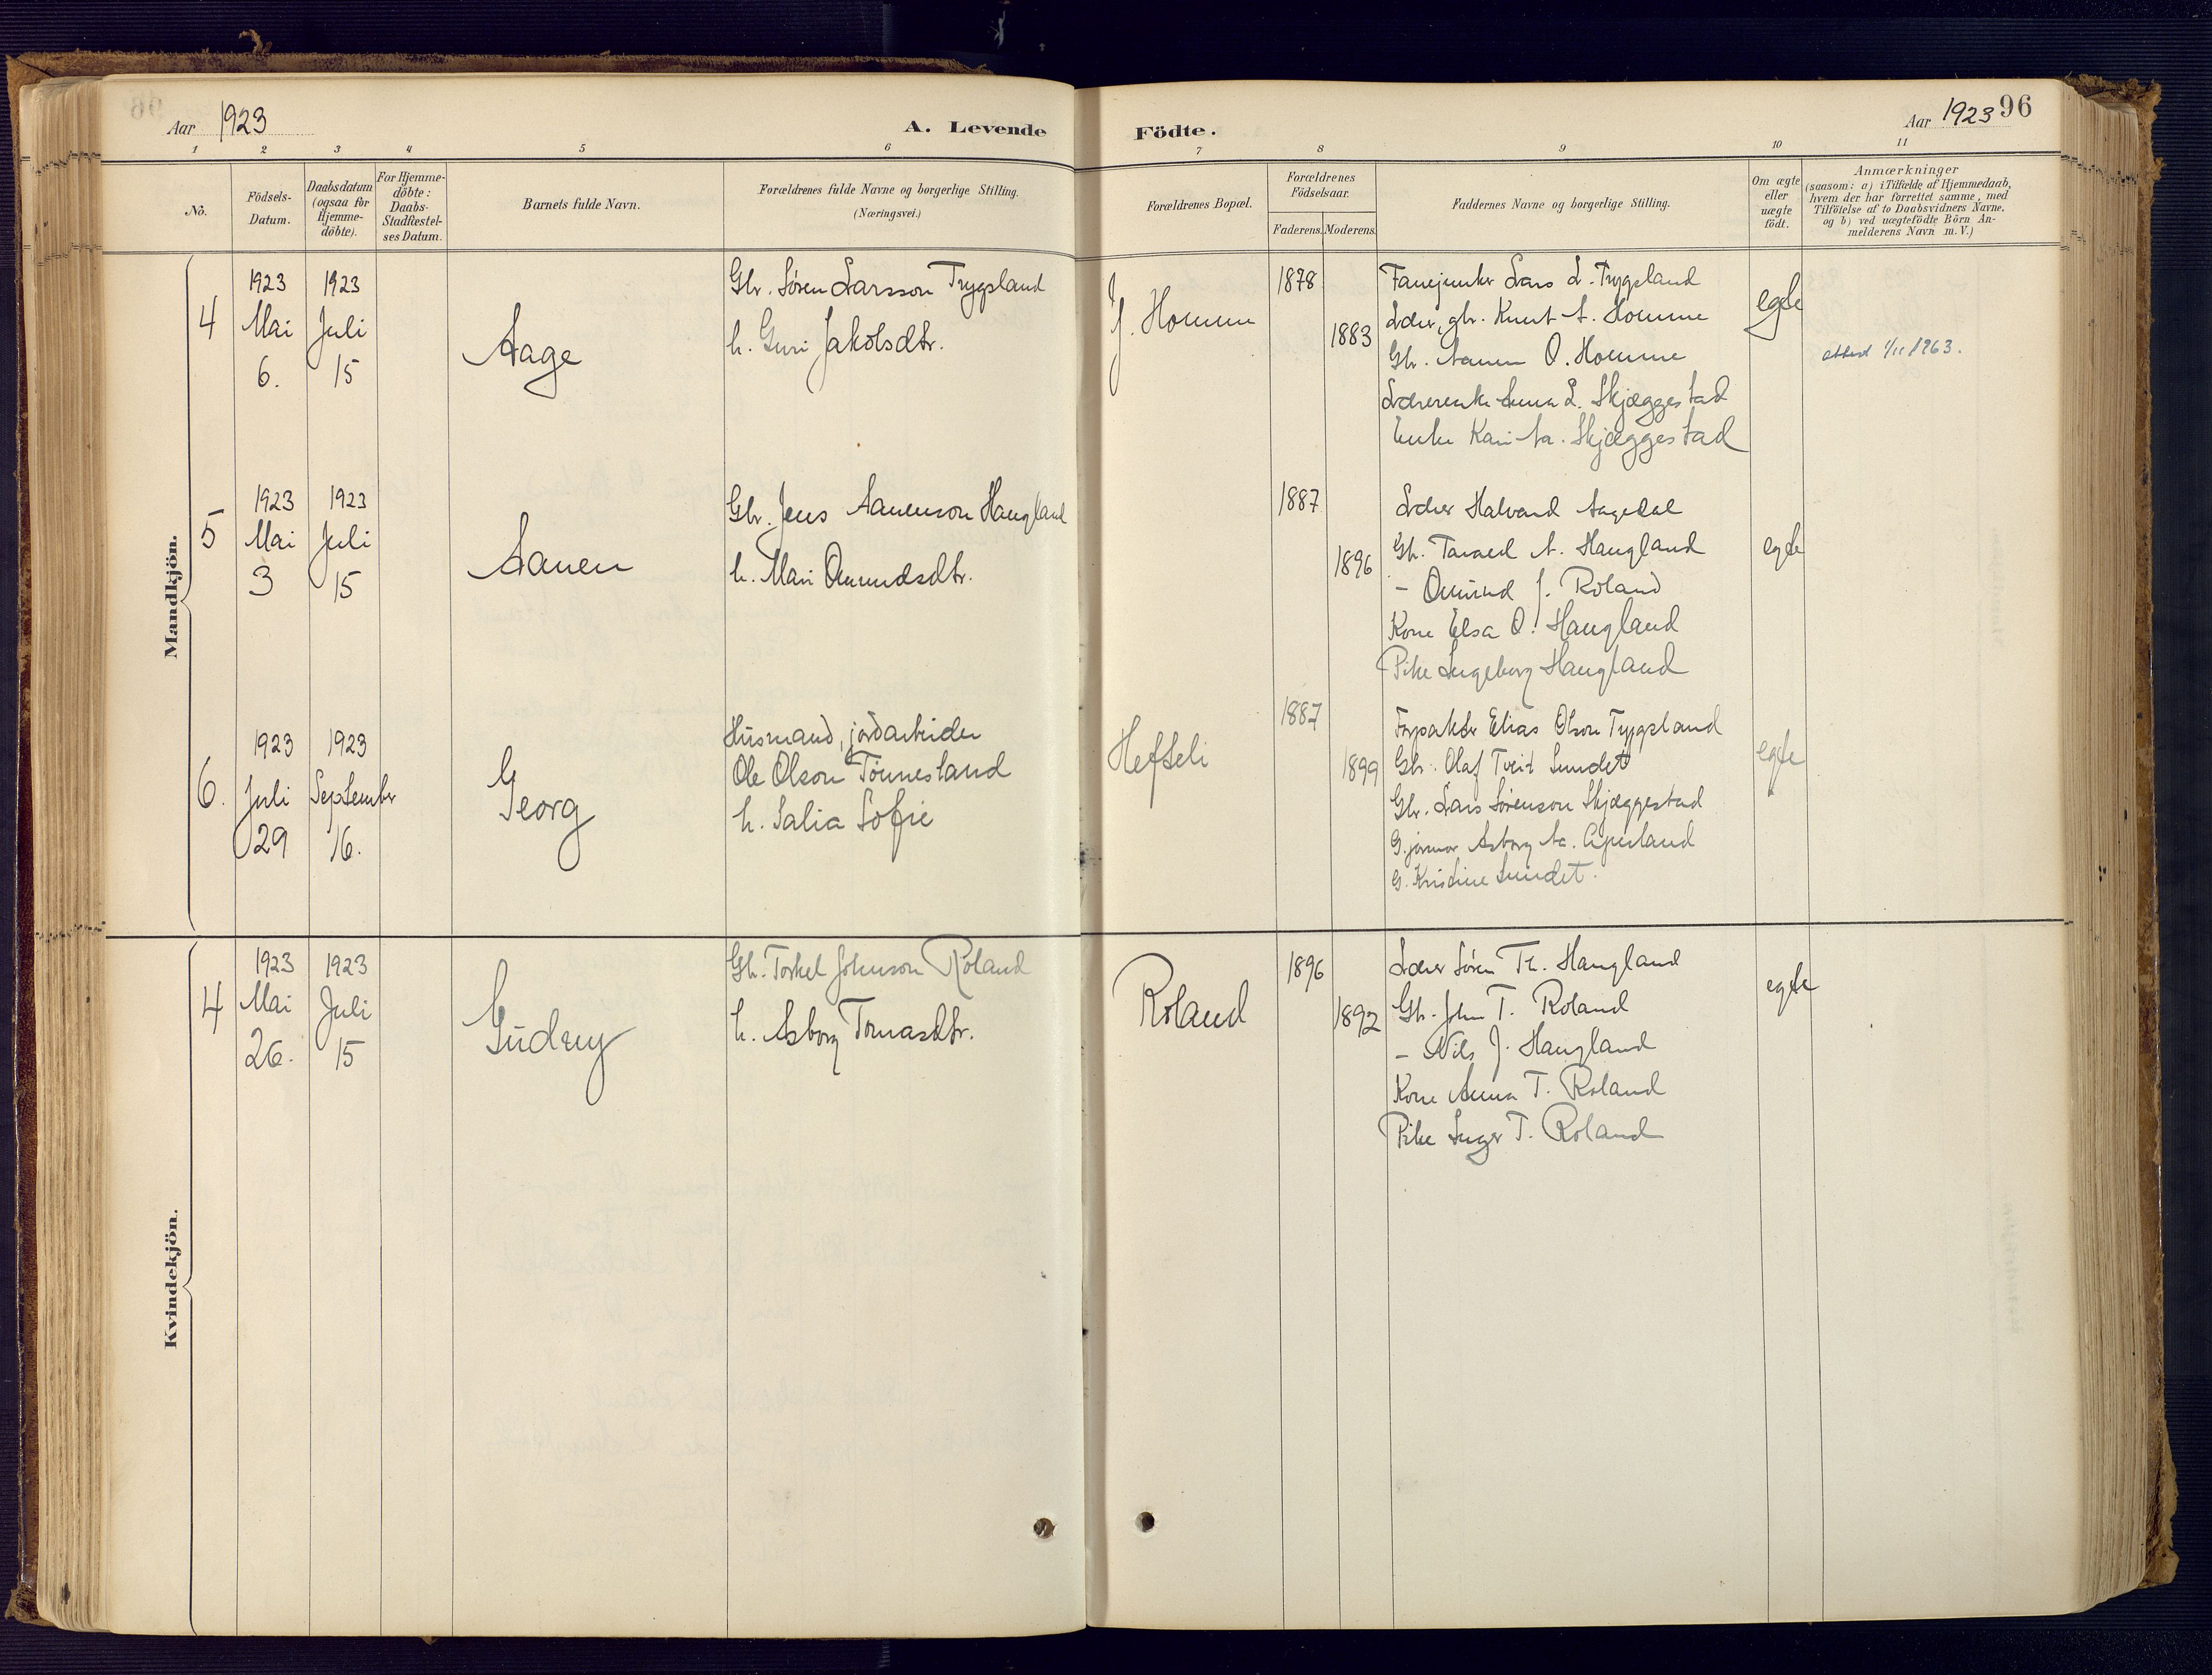 Aar 1923
A. Levende
Födte.
Aar 1923 96
1 2 3 4 5 6 7 8 9 10 11
No.
Födsels-
Datum.
Daabsdatum
(ogsaa for
Hjemme-
döbte).
For Hjemme-
döbte:
Daabs-
Stadfæstel-
ses Datum.
Barnets fulde Navn.
Forældrenes fulde Navne og borgerlige Stilling.
(Næringsvei.)
Forældrenes Bopæl.
Forældrenes
Födselsaar.
Faderens. Moderens.
Faddernes Navne og borgerlige Stilling.
Om ægte
eller
uægte
födt.
Anmærkninger
(saasom: a) i Tilfælde af Hjemmedaab,
hvem der har forrettet samme, med
Tilföielse af to Daabsvidners Navne,
og b) ved uægtefödte Börn An-
melderens Navn m. V.)
Mandkjön.
4
1923
Mai
6.
1923
Juli
15
Aage
Gbr. Søren Larsson Trygsland
h. Guri Jakobsdtr.
Homme
1878
1883
Fanejunker Lars L. Trygsland
Lærer, gbr. Knut A. Homme
Gbr. Aanen O. Homme
Lærerenke Anna L. Skjæggestad
Enke Kari Aa. Skjæggestad
egte
attest 1/11 1963.
5
1923
Mai
3
1923
Juli
15
Aanen
Gbr. Jens Aanenson Haugland
h. Mari Omundsdtr.
1887
1896
Lærer Halvard Aagedal
Gbr. Tarald A. Haugland
- Omund J. Roland
Kone Elsa O. Haugland
Pike Ingeborg Haugland
egte
6.
1923
Juli
29
1923
September
16.
Georg
Husmand, jordarbeider
Ole Olson Tønnesland
h. Salia Sofie
Hefteli
1887
1899
Forpakter Elias Olson Trygsland
Gbr. Olaf Tveit Sundet
Gbr. Lars Sørenson Skjæggestad
G. Asborg Aa.
G. Kristine Sundet.
egte
Kvindekjön.
4
1923
Mai
26.
1923
Juli
15
Gudny
Gbr. Torkel Johnson Roland
h. Asborg Tomasdtr.
Roland
1896
1892
Lærer Søren Th. Haugland
Gbr. John T. Roland
- Nils J. Haugland
Kone Anna T. Roland
Pike Inger T. Roland
egte